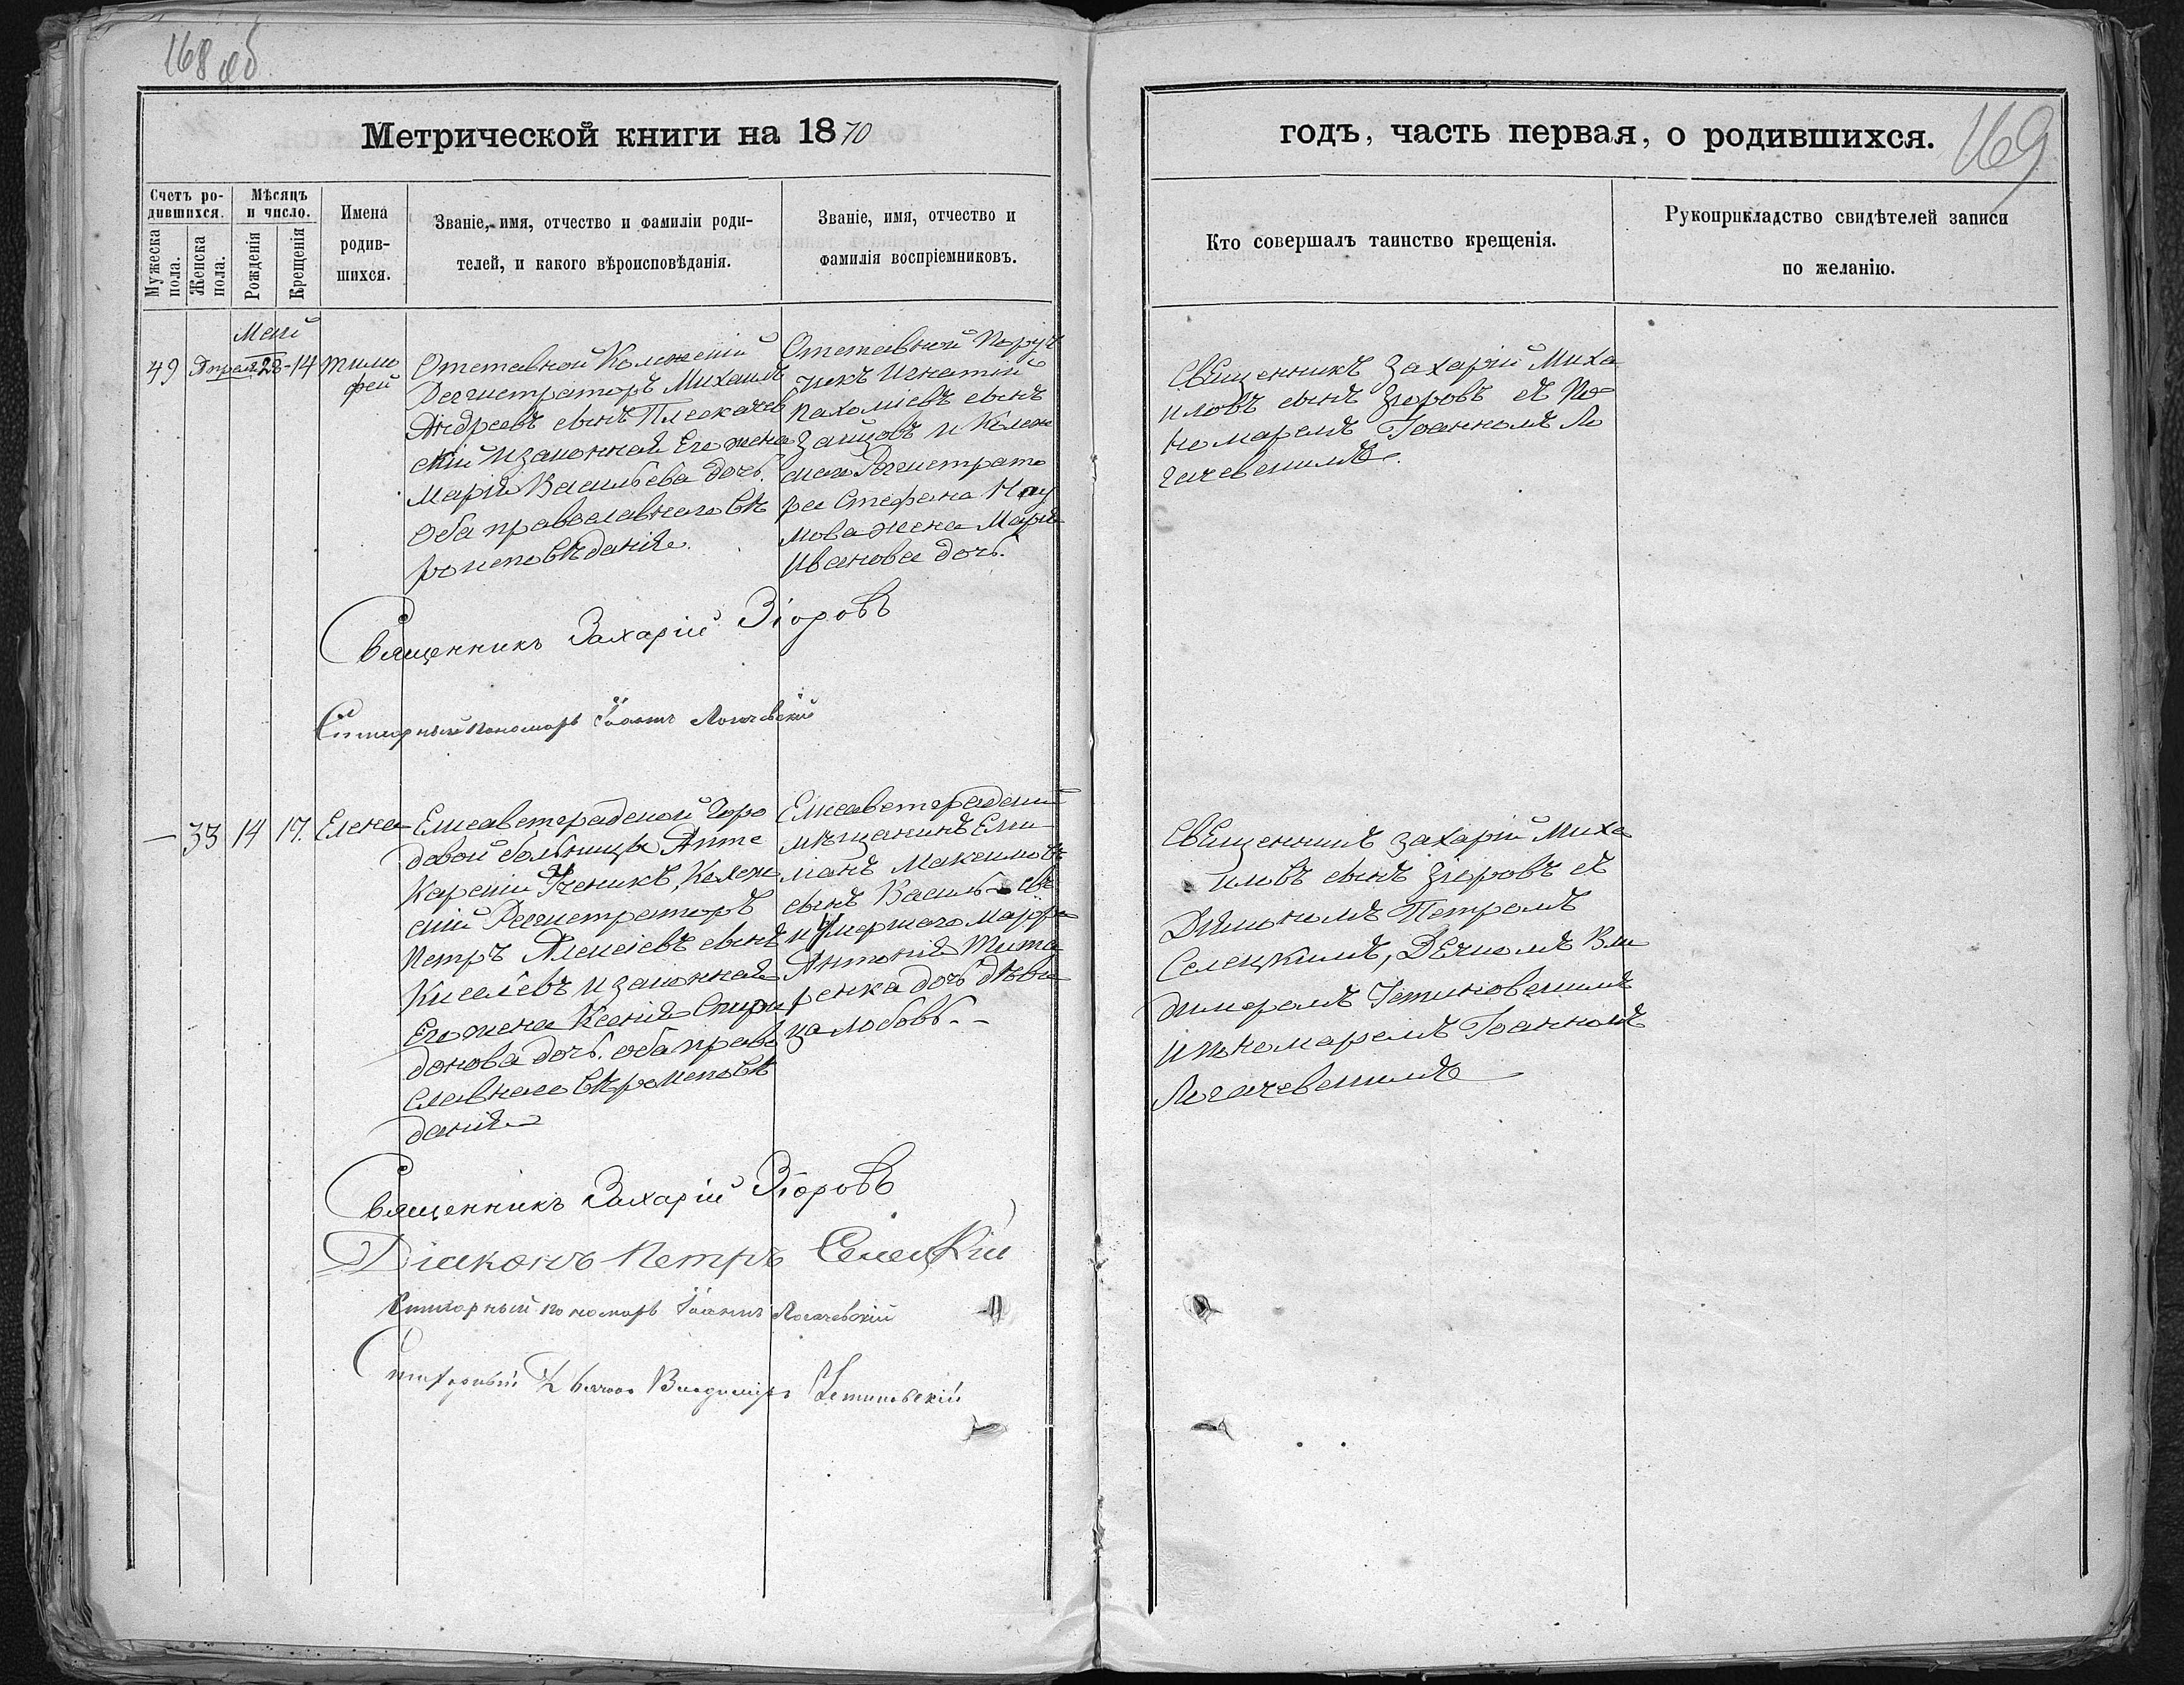 168 об
Метрической книги на 1870
Счетъ ро-
дившихся.
Мужеска пола.
Женска пола.
Мѣсяцъ
и число.
Рожденія
Крещенія
Имена
родив-
шихся.
Званіе, имя, отчество и фамиліи роди-
телей, и какого вѣроисповѣданія.
Званіе, имя, отчество и
фамилія воспріемниковъ.
Май
49 Апрел. 28 - 14 Тимо
фей
Отставной Коллежскій
Регистраторъ Михаилъ
Андреевъ сынъ Плескачев
скій и законная Его жена
Марія Васильева дочь.
Оба православнаго вѣ
роисповѣданія.
Отставной Поруч
чикъ Игнатій
Пахоміевъ сынъ
Зайцовъ и Колеж
скаго Регистрато
ра Стефана Нау
мова жена Марія
Иванова дочь.
Священникъ Захарій Зіоровъ
Стихарный пономарь Іоаннъ Логачевскій
— 33 14 17. Елена
Елисаветградской Горо
довой больницы Апте
карскій Ученикъ, Колеж
скій Регистраторъ
Петръ Алексіевъ сынъ
Киселевъ и законная
Его жена Ксенія Спири
донова дочь. оба право
славнаго вѣроисповѣ
данія
Елисаветградскій
мѣщанинъ Еми
ліанъ Максимовъ
сынъ Васильевъ
и Умершаго Маіора
Антонія Тита
ренка дочь дѣви
ца Любовь. -
Священникъ Захарій Зіоровъ
Діаконъ Петръ Селецкій
Стихарный пономарь Іоаннъ Логачевскій
Стихарный Дьячокъ Владиміръ Устиновскій
годъ, часть первая, о родившихся.
169
Кто совершалъ таинство крещенія.
Рукоприкладство свидѣтелей записи
по желанію.
Священникъ Захарій Миха
иловъ сынъ Зіоровъ съ По
номаремъ Іоанномъ Ло
гачевскимъ.
Священникъ Захарій Миха
иловъ сынъ Зіоровъ съ
Діакономъ Петромъ
Селецкимъ, Дьячкомъ Вла
диміромъ Устиновскимъ
и пономаремъ Іоанномъ
Логачевскимъ